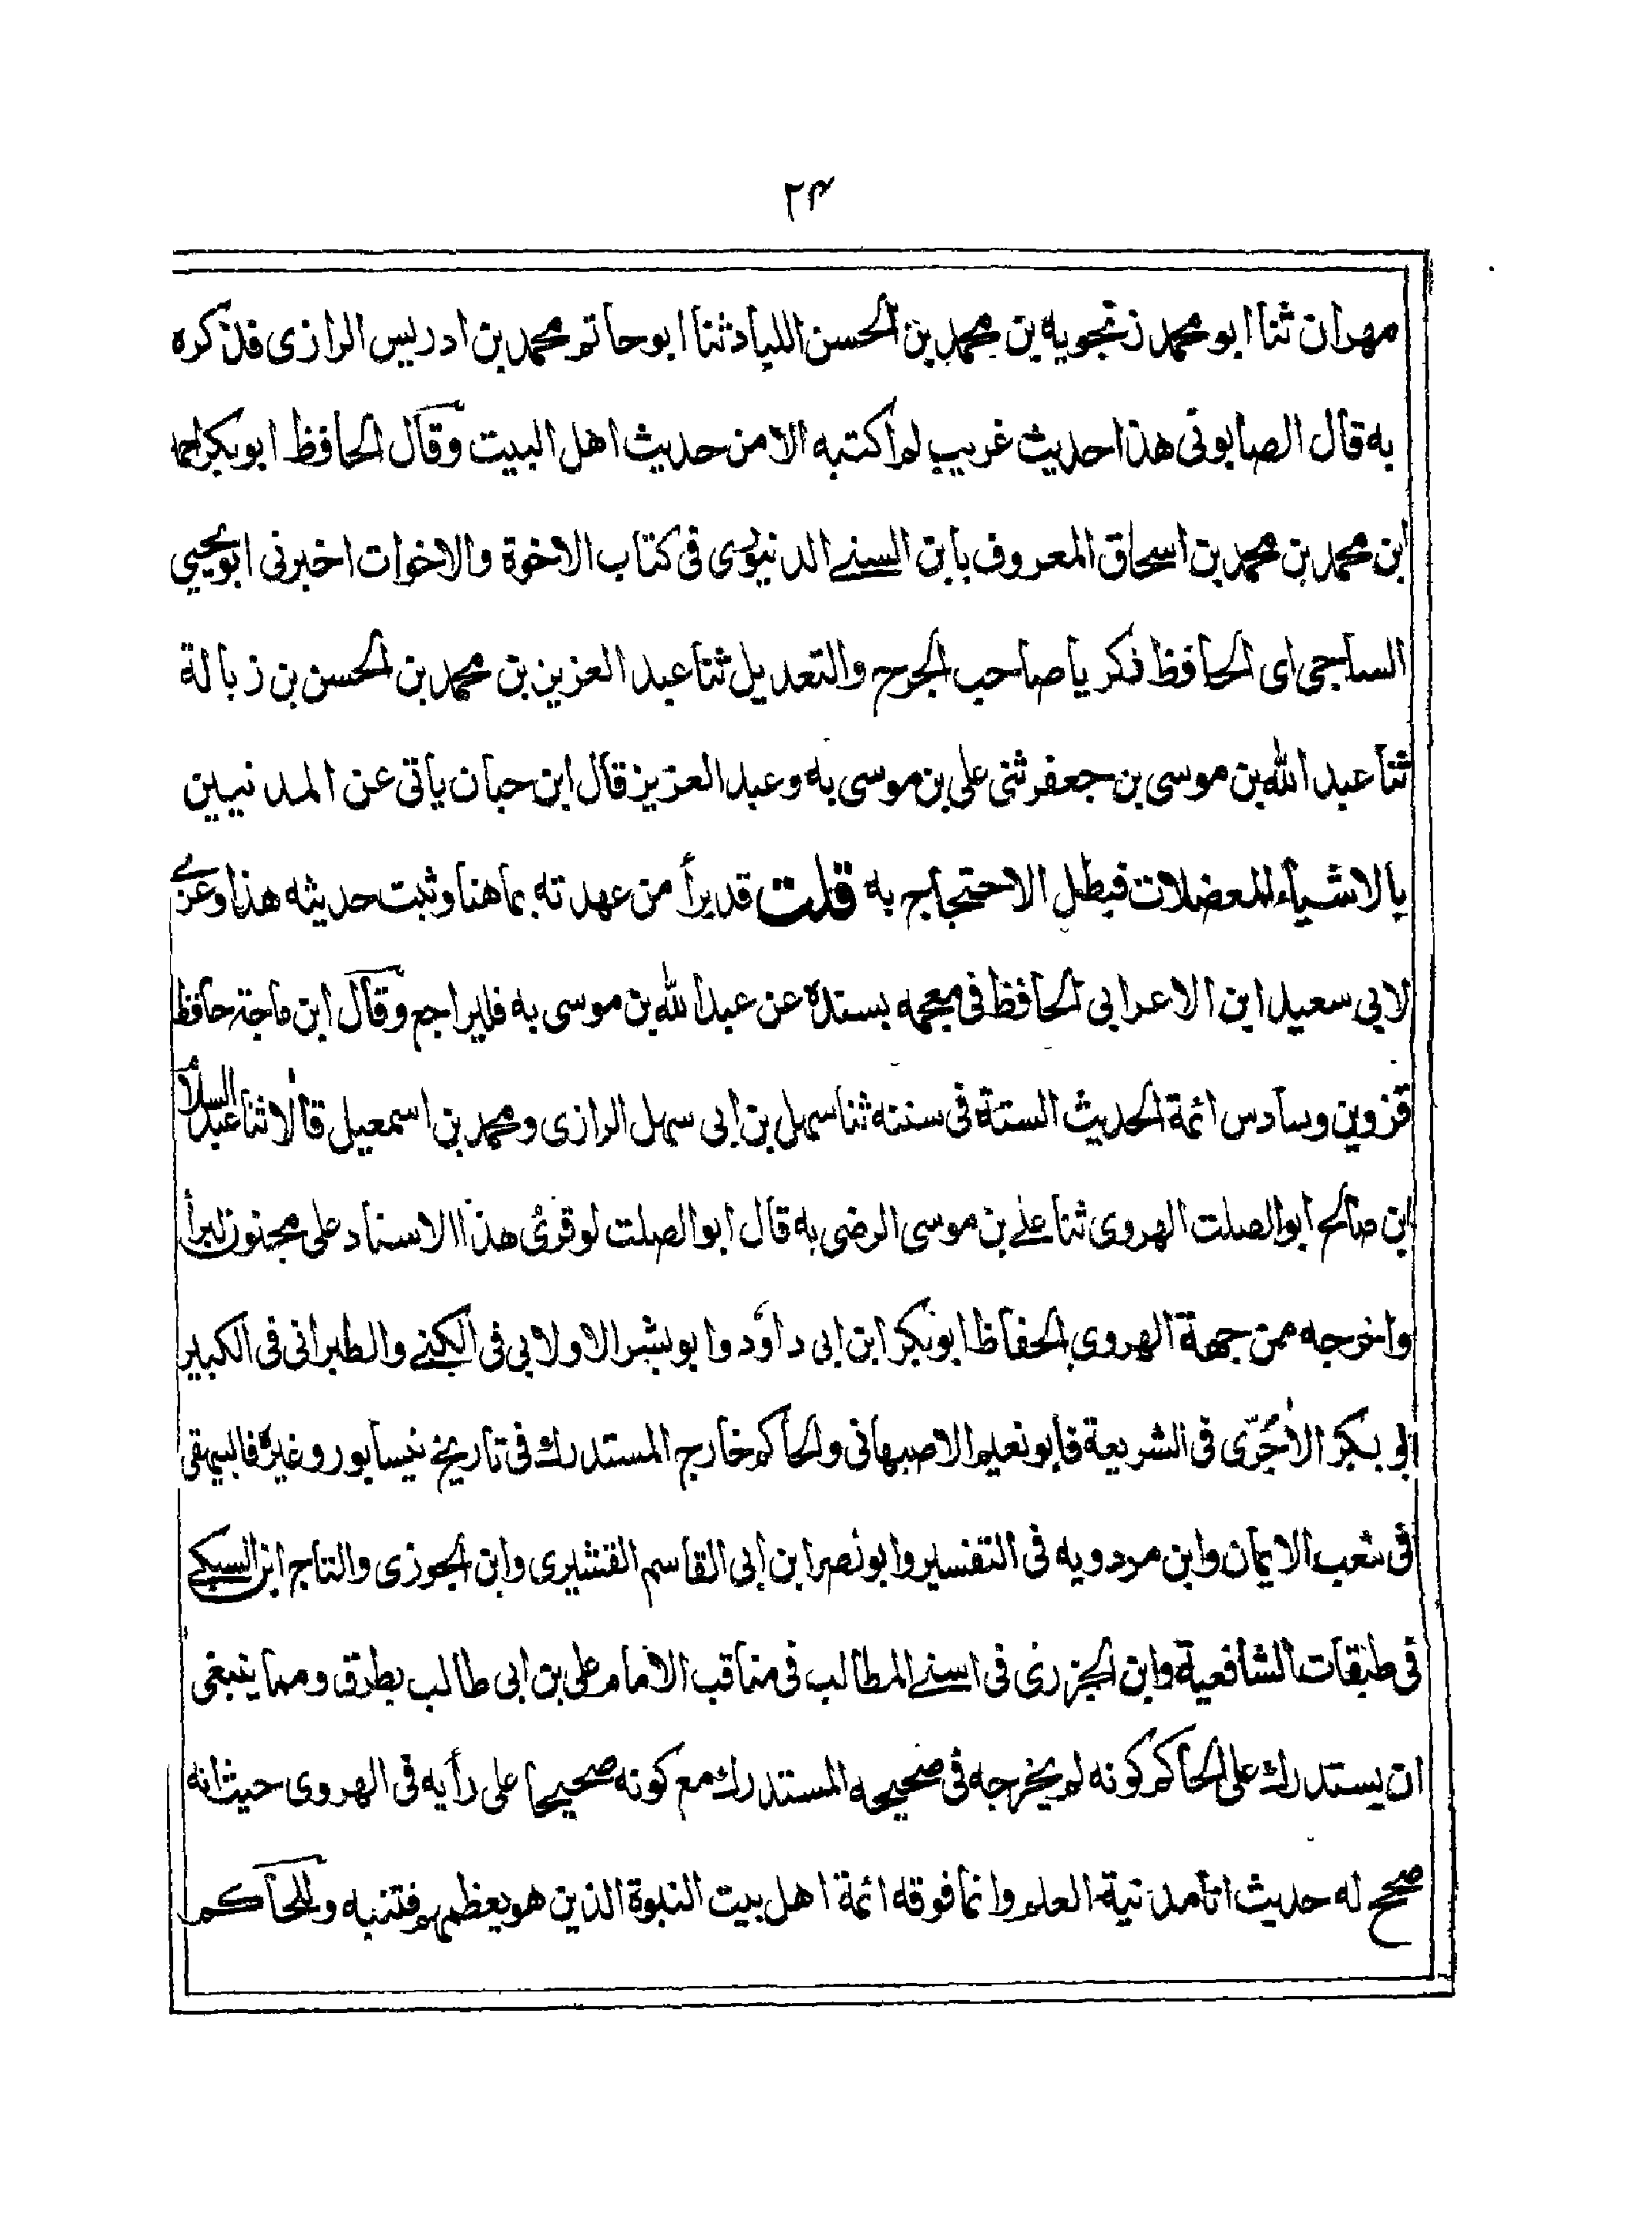 ٢٣
مهران ثنا ابو محمد زنجويه بن محمد بن الحسن اللباد ثنا ابو حاتم محمد بن ادريس الرازى فذكره
به قال الصابونى هذا حديث غريب لم اكتبه الا من حديث اهل البيت وقال الحافظ ابو بكر احمد
ابن محمد بن محمد بن اسحاق المعروف بابن السنى الدينورى فى كتاب الاخوة والاخوات اخبرنى ابو يحيى
الساجى اى الحافظ زكريا صاحب الجرح والتعديل ثنا عبد العزيز بن محمد بن الحسن بن زبالة
ثنا عبد الله بن موسى بن جعفر ثنى على بن موسى به وعبد العزيز قال ابن حبان ياتى عن المدنيين
بالاشياء المعضلات فبطل الاحتجاج به قلت قد برأ من عهدته بما هنا وثبت حديثه هذا وعزى
لابى سعيد ابن الاعرابى الحافظ فى معجمه بسنده عن عبد الله بن موسى به فليراجع وقال ابن ماجة حافظ
قزوين وسادس ائمة الحديث الستة فى سننه ثنا سهل بن ابى سهل الرازى ومحمد بن اسمعيل قالا ثنا عبد السلام
ابن صالح ابو الصلت الهروى ثنا على بن موسى الرضى به قال ابو الصلت لو قرئ هذا الاسناد على مجنون لبرأ
واخرجه من جهة الهروى الحفاظ ابو بكر ابن ابى داؤد وابو بشر الاولابى فى الكنى والطبرانى فى الكبير
ابو بكر الأجُرّى فى الشريعة فابو نعيم الاصبهانى والحاكم خارج المستدرك فى تاريخ نيسابور وغيره فالبيهقى
فى شعب الايمان وابن مردويه فى التفسير وابو نصر ابن ابى القاسم القشيرى وابن الجوزى والتاج ابن السبكى
فى طبقات الشافعية وابن الجزرى فى اسنى المطالب فى مناقب الامام على بن ابى طالب بطرق ومما ينبغى
ان يستدرك على الحاكم كونه لم يخرجه فى صحيحه المستدرك مع كونه صحيحا على رأيه فى الهروى حيث انه
صحح له حديث انا مدينة العلم وانما فوقه ائمة اهل بيت النبوة الذين هو يعظمهم فتنبه وللحاكم